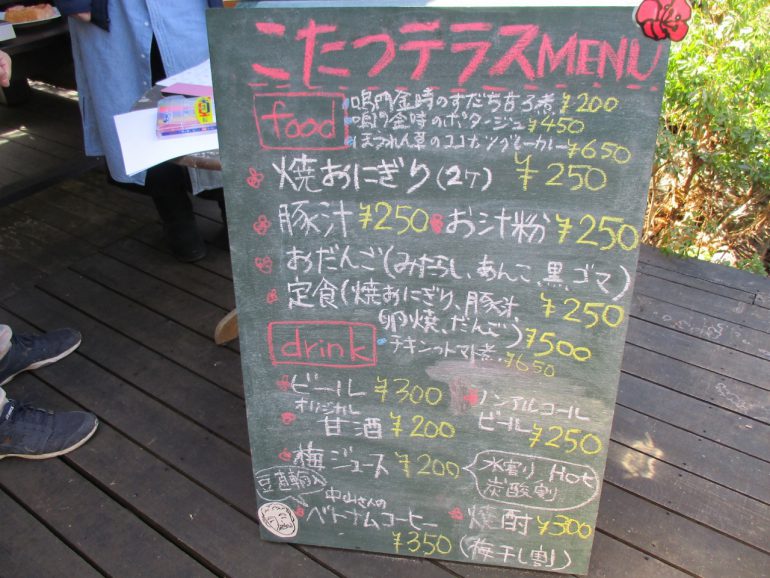 こたつテラスMENU
food
鳴門金時のすだち甘煮 ¥200
鳴門金時のポタージュ ¥450
ほうれん草のココナッツミルクカレー ¥650
焼おにぎり(2ケ) ¥250
豚汁 ¥250 お汁粉 ¥250
おだんご(みたらし、あんこ、黒ゴマ)
¥250
定食(焼おにぎり、豚汁、
卵焼、だんご) ¥500
チキンのトマト煮 ¥650
drink
ビール ¥300
ノンアルコール
ビール ¥250
オリジナル
甘酒 ¥200
梅ジュース ¥200
水割り Hot
炭酸割
中山さんの
ベトナムコーヒー
¥350
焼酎 ¥300
(梅干し割)